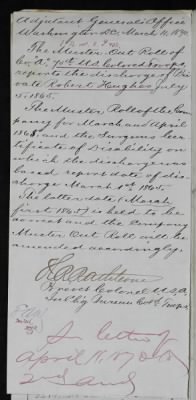 Adjutant General's Office
Washington D.C. March 11, 1890.
The Muster Out Roll of
Co. A. 70th U.S. Colored Troops,
reports the discharge of Pri-
vate Robert Hughes July
5. 1865.
The Muster Roll of the Com-
pany for March and April
1865 and the Surgeons Cer-
tificate of Disability on
which the discharge was
based report date of dis-
charge March 1st 1865.
The latter date (March
first 1865) is held to be
correct and the Company
Muster Out Roll will be
amended accordingly.
Brevet Colonel U.S.A.
In letter of
April 11,
2nd Aud